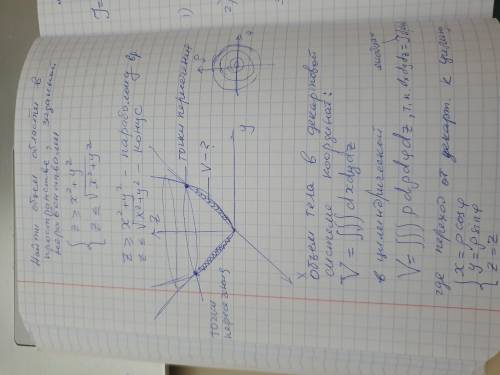 Найти объем области в
пространстве, заданной
неравенствами
{ z ≥ x² + y²
{ z ≤ √x² + y²
z ≥ x² + y² - параболоид вр.
z ≤ √x² + y² - конус
z
точки пересечения
V - ?
точки
пересечения
y
x
Объем тела в декартовой
системе координат:
V = ∭ dxdydz
в цилиндрической
V = ∭ ρ dρ dφ dz, т.к. dxdydz =
где переход от декарт. к цилин.
{ x = ρ cos φ
{ y = ρ sin φ
{ z = z
1)
2)